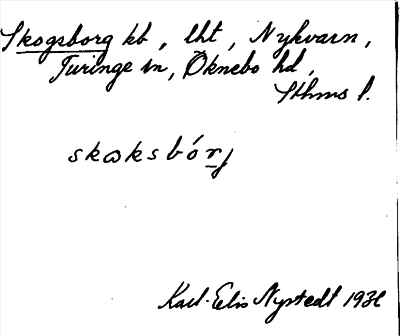 Skogsborg kb, lht, Nykvarn,
Turinge sn, Öknebo hd,
Sthms l.
skɷksbórj
Karl-Elis Nystedt 193